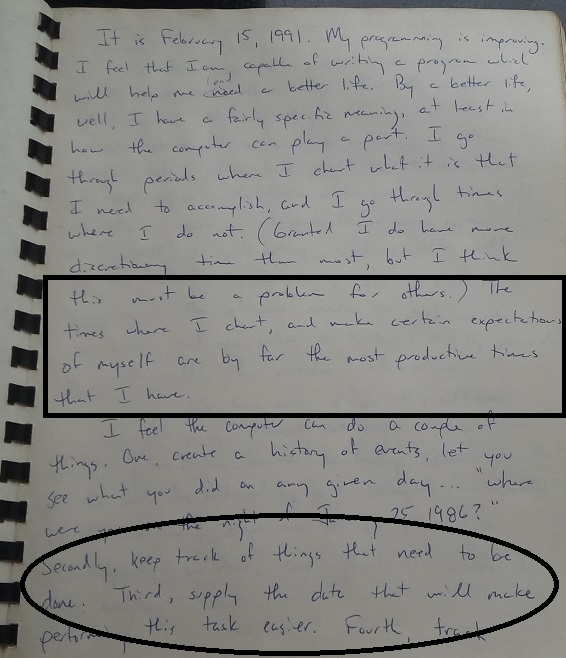 It is February 15, 1991. My programming is improving.
I feel that I am capable of writing a program which
will help me lead a better life. By a better life,
well, I have a fairly specific meaning, at least in
how the computer can play a part. I go
through periods where I chart what it is that
I need to accomplish, and I go through times
where I do not. (Granted I do have more
discretionary time than most, but I think
this must be a problem for others.) The
times where I chart, and make certain expectations
of myself are by far the most productive times
that I have.
I feel the computer can do a couple of
things. One, create a history of events, let you
see what you did on any given day... "where
were you on the night of January 25 1986?"
Secondly, keep track of things that need to be
done. Third, supply the data that will make
performing this task easier. Fourth, track